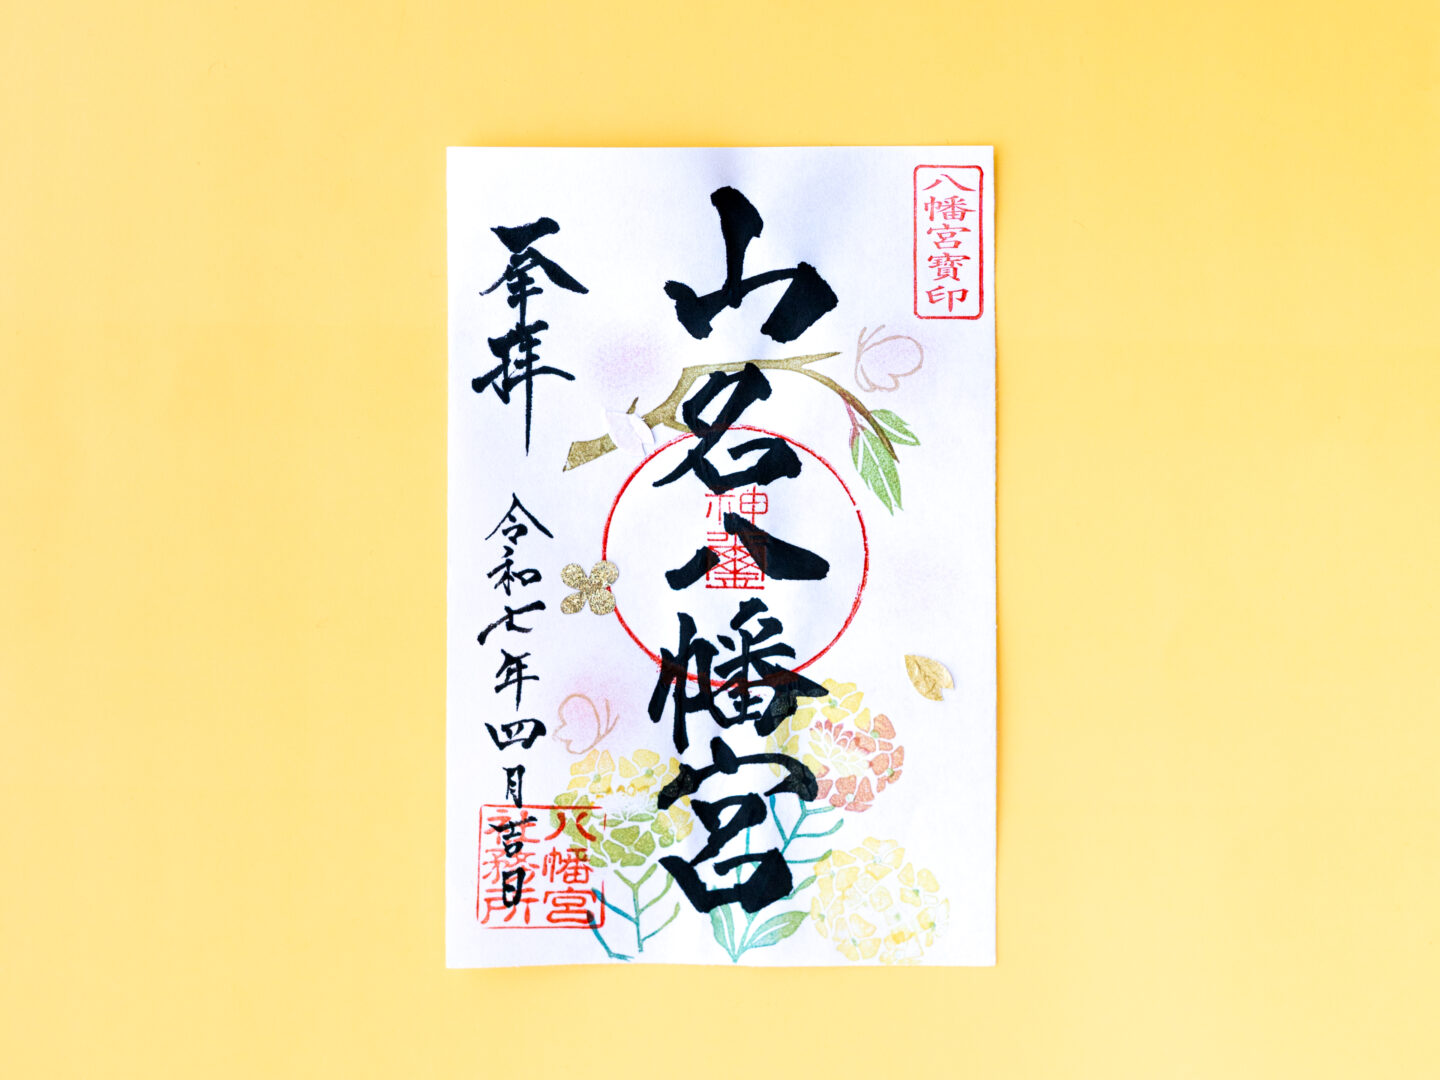 八幡宮寶印
山名八幡宮
神璽
奉拝
令和七年四月吉日
八幡宮
社務所